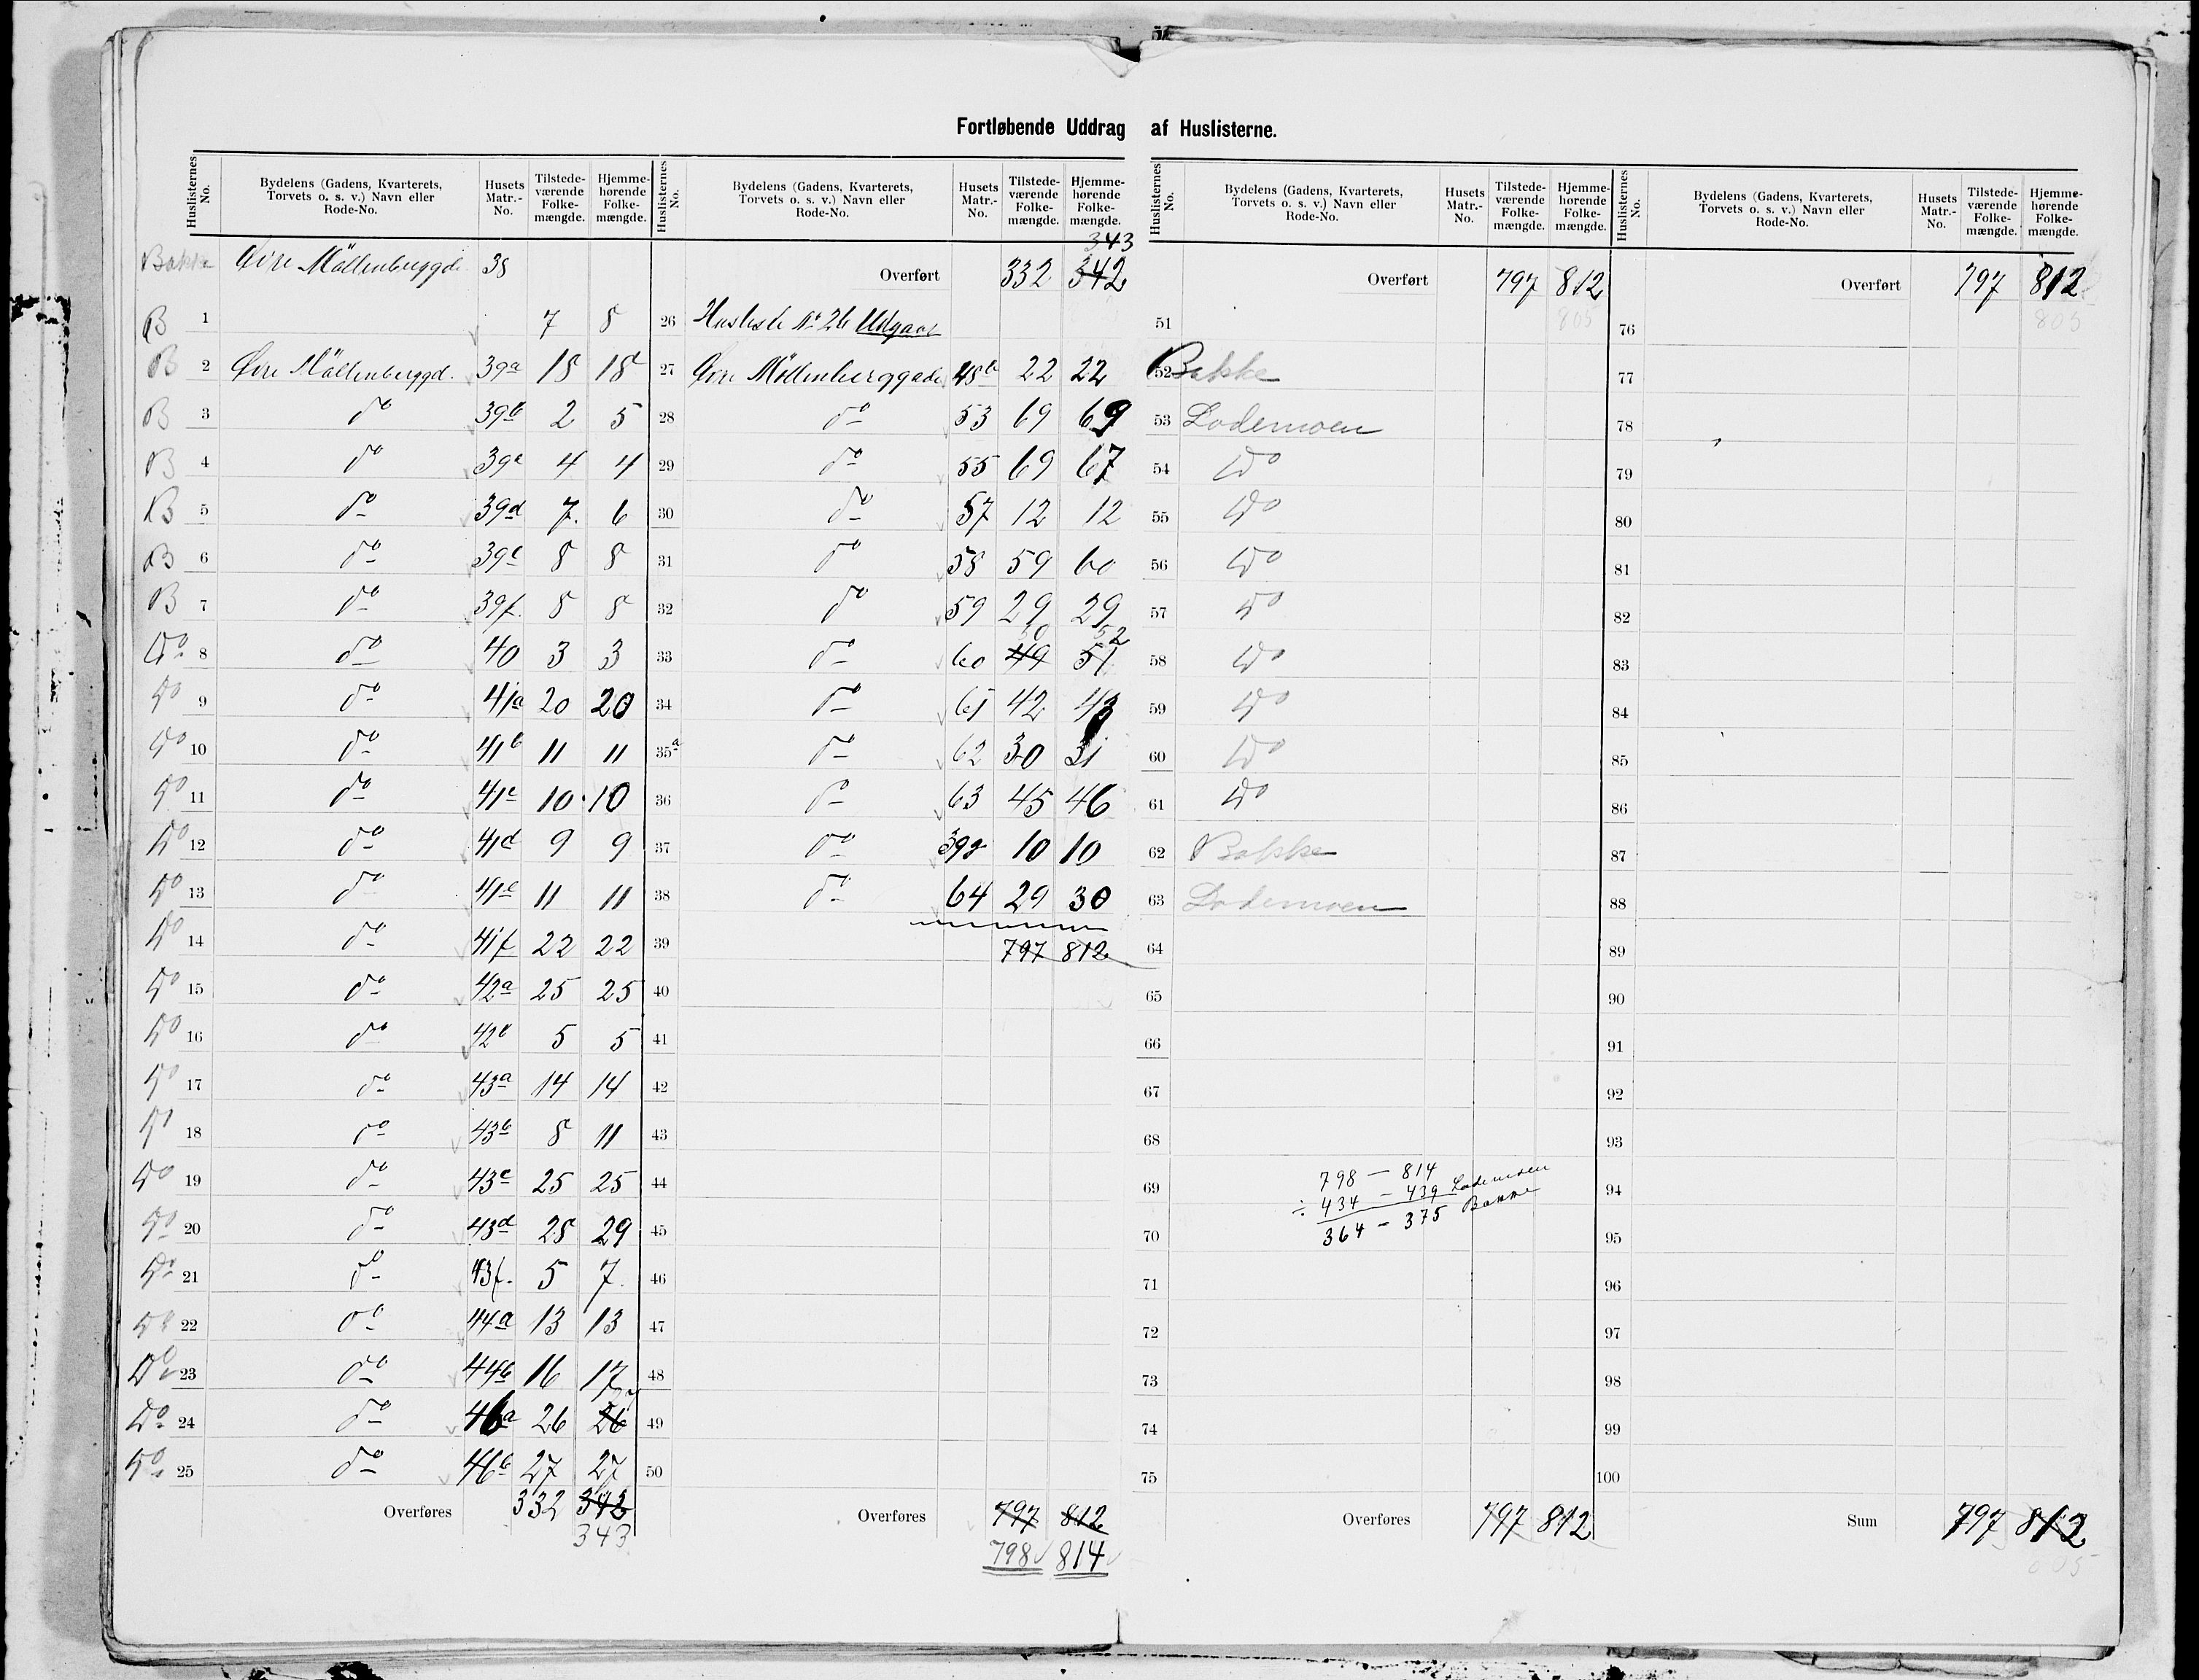 Fortløbende Uddrag af Huslisterne.
Huslisternes No. Bydelens (Gadens, Kvarterets, Torvets o. s. v.) Navn eller Rode-No. Husets Matr.-No. Tilstede-værende Folke-mængde. Hjemme-hørende Folke-mængde.
Bakke Øvre Möllenberggd. 38
B 1 7 8
B 2 Øvre Möllenberggd. 39a 18 18
B 3 do 39b 2 5
B 4 do 39c 4 4
B 5 do 39d 7. 6
B 6 do 39e 8 8
B 7 do 39f. 8 8
Do 8 do 40 3 3
Do 9 do 41a 20 20
Do 10 do 41b 11 11
Do 11 do 41c 10 10
Do 12 do 41d 9 9
Do 13 do 41e 11 11
Do 14 do 41f 22 22
Do 15 do 42a 25 25
Do 16 do 42b 5 5
Do 17 do 43a 14 14
Do 18 do 43b 8 11
Do 19 do 43c 25 25
Do 20 do 43d 28 29
Do 21 do 43f. 5 7.
Do 22 do 44a 13 13
Do 23 do 44b 16 17
Do 24 do 46a 26 26 27
Do 25 do 46b 27 27
Overføres 332 342
343
Huslisternes No. Bydelens (Gadens, Kvarterets, Torvets o. s. v.) Navn eller Rode-No. Husets Matr.-No. Tilstede-værende Folke-mængde. Hjemme-hørende Folke-mængde.
343
Overført 332 342
26 Husliste No 26 Udgaar
27 Øvre Möllenberggade 48b 22 22
28 do 53 69 69
29 do 55 69 67
30 do 57 12 12
31 do 58 59 60
32 do 59 29 29
50 52
33 do 60 49 51
34 do 61 42 43
35a do 62 30 31
36 do 63 45 46
37 do 39g 10 10
38 do 64 29 30
39 797 812
40
41
42
43
44
45
46
47
48
49
50
Overføres 797 812
798 814
Huslisternes No. Bydelens (Gadens, Kvarterets, Torvets o. s. v.) Navn eller Rode-No. Husets Matr.-No. Tilstede-værende Folke-mængde. Hjemme-hørende Folke-mængde.
Overført 797 812
805
51
52 Bakke
53 Lademoen
54 Do
55 Do
56 Do
57 Do
58 Do
59 Do
60 Do
61 Do
62 Bakke
63 Lademoen
64
65
66
67
68
69
798 — 814
÷ 434 — 439 Lademoen
364 — 375 Bakke
70
71
72
73
74
75
Overføres 797 812
Huslisternes No. Bydelens (Gadens, Kvarterets, Torvets o. s. v.) Navn eller Rode-No. Husets Matr.-No. Tilstede-værende Folke-mængde. Hjemme-hørende Folke-mængde.
Overført 797 812
805
76
77
78
79
80
81
82
83
84
85
86
87
88
89
90
91
92
93
94
95
96
97
98
99
100
Sum 797 812
805